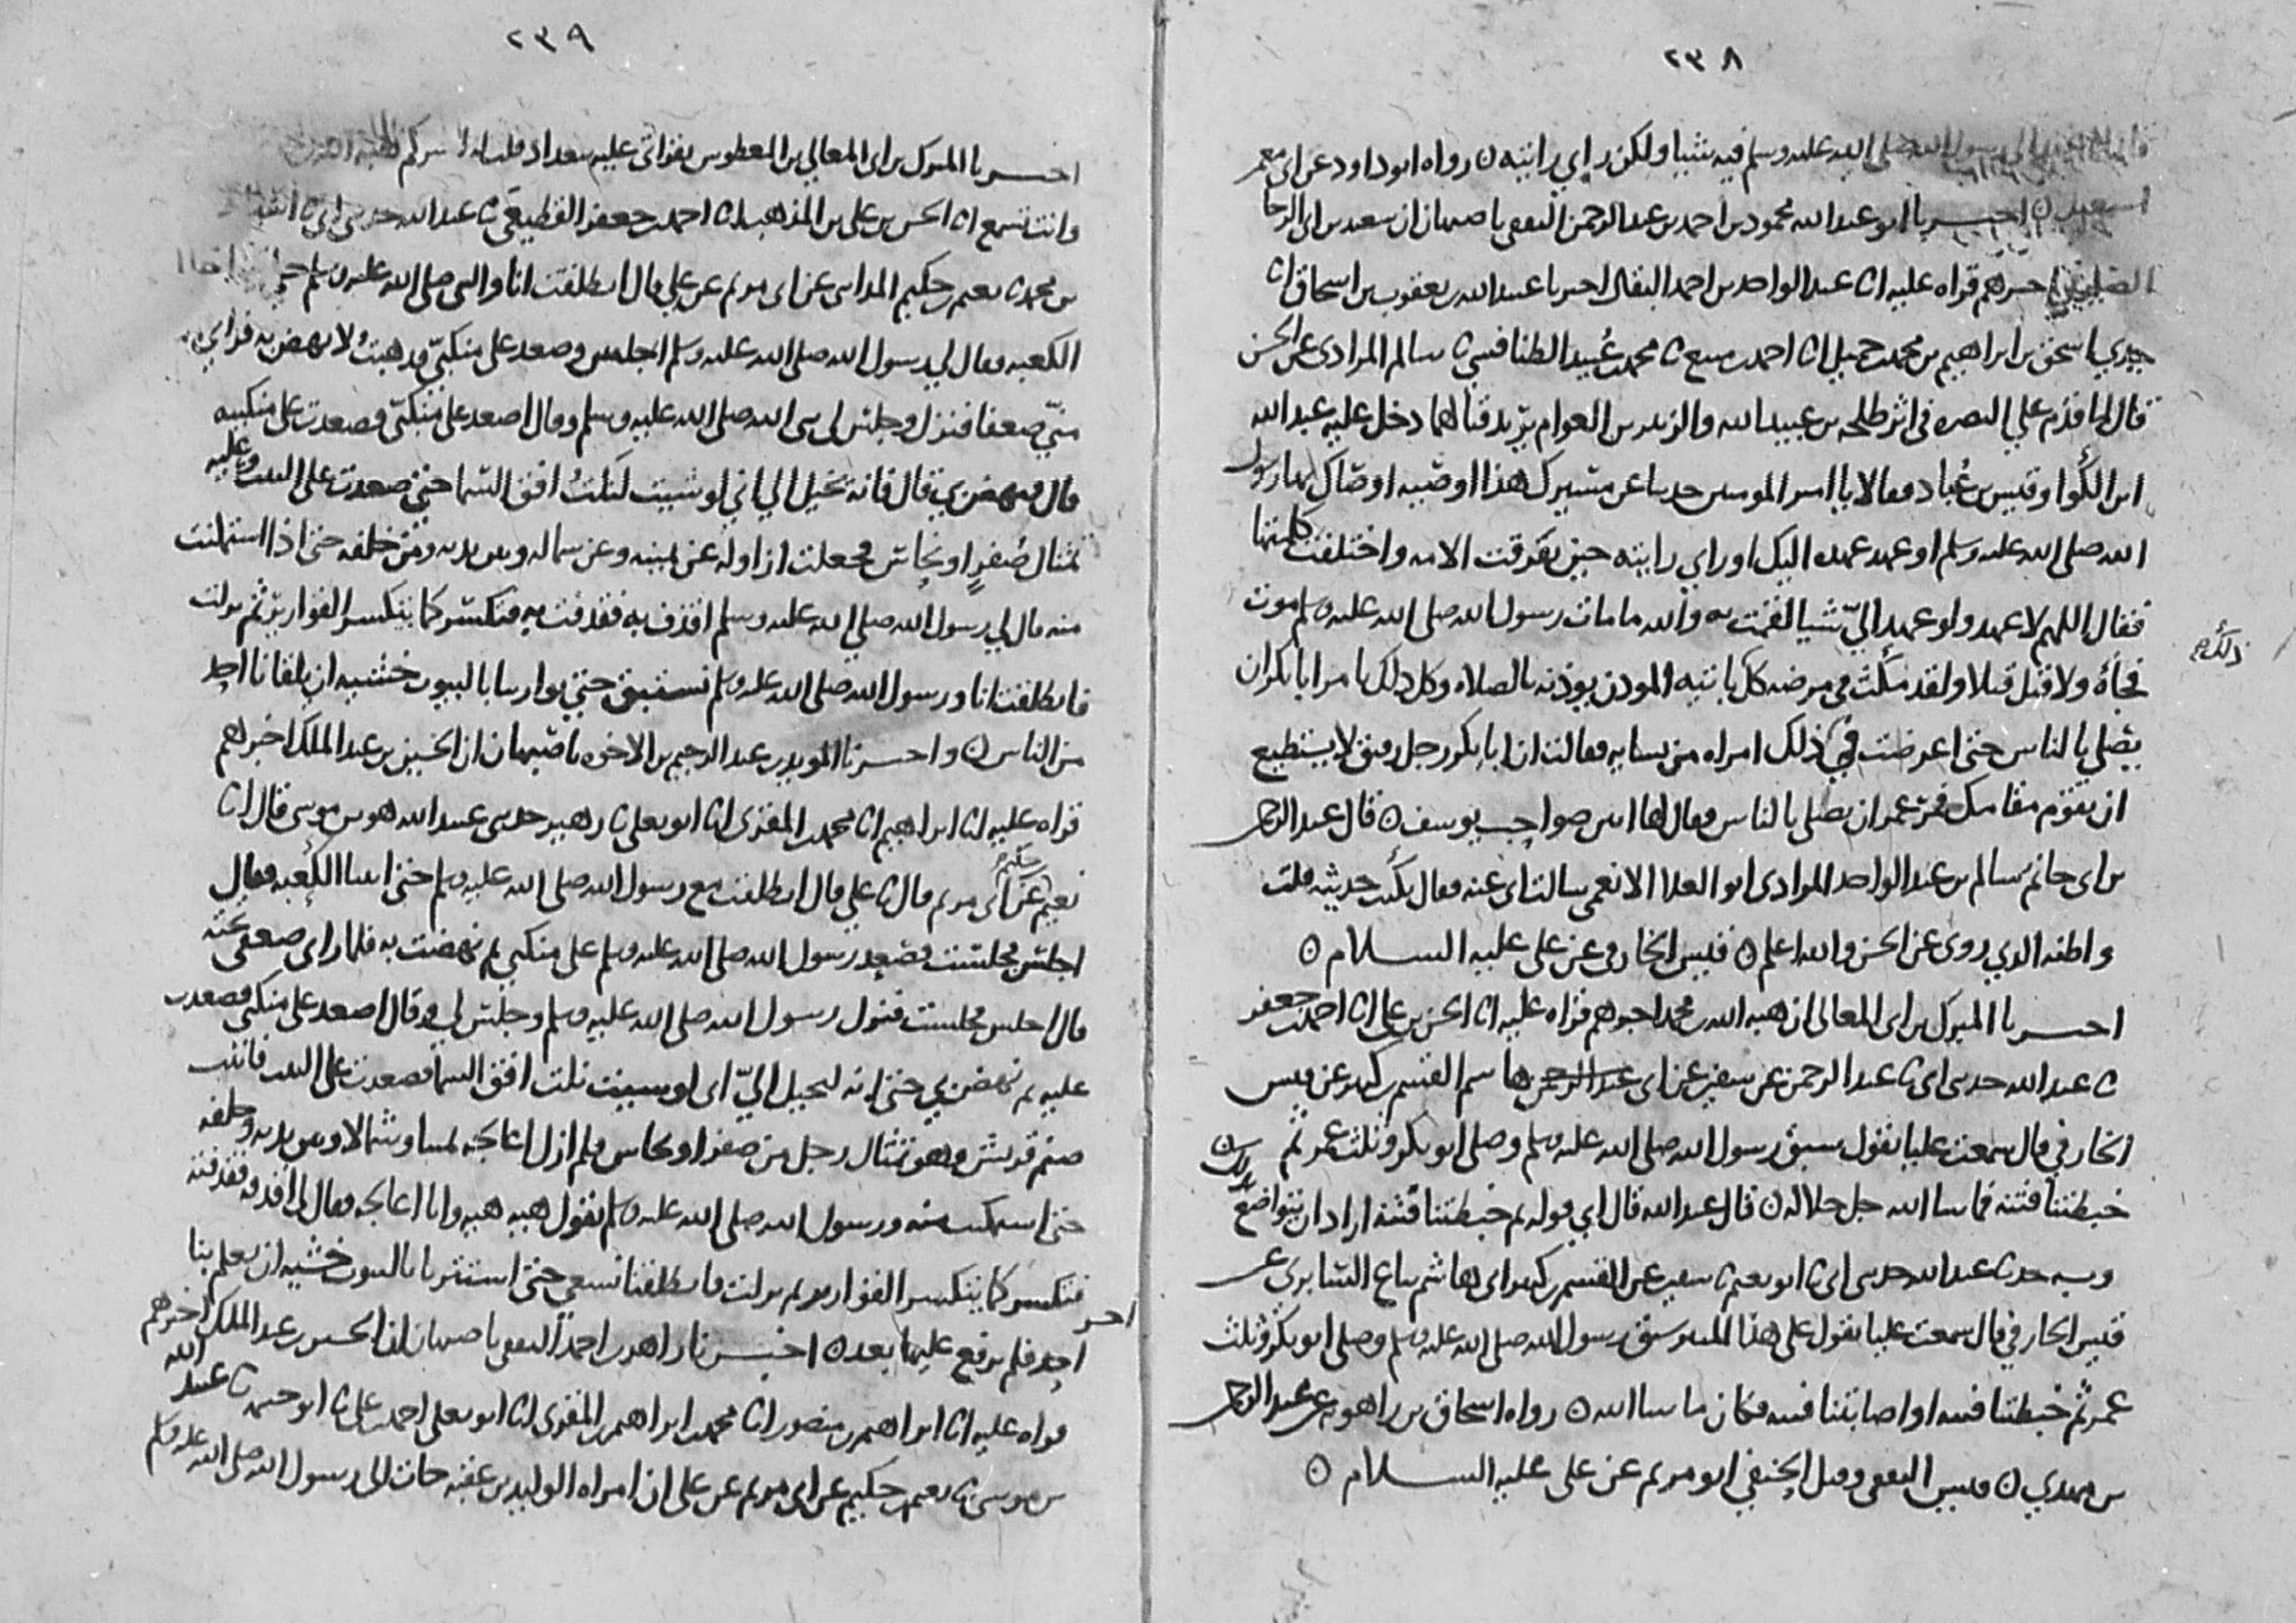 ٢٣٨
رسول الله صلى الله عليه وسلم فيه شيا ولكن راي رايته ن رواه ابو داود عن ابي معمر
اخبرنا ابو عبد الله محمود بن احمد بن عبد الرحمن الثقفي باصبهان ان سعيد بن ابي الرجا
الصيرفي اخبرهم قراه عليه انا عبد الواحد بن احمد البقال اخبرنا عبيد الله بن يعقوب بن اسحاق انا
جدي اسحق بن ابراهيم بن محمد بن جميل انا احمد بن منيع نا محمد بن عبيد الطنافسي نا سالم المرادي عن الحسن
قال لما قدم علي البصره في اثر طلحه بن عبيد الله والزبير بن العوام يريد قتالهما دخل عليه عبد الله
ابن الكوا وقيس بن عباد فقالا يا امير المومنين حدثنا عن مسيرك هذا اوصيه اوصاك بها رسول
الله صلى الله عليه وسلم او عهد عهده اليك او راي رايته حين تفرقت الامه واختلفت كلمتها
فقال اللهم لا عهد ولو عهد اليّ شيا لقمت به والله ما مات رسول الله صلى الله عليه وسلم موت
فجأة ولا قتل قتلا ولقد مكث في مرضه كل ياتيه المودن يوذنه بالصلاه وكل ذلك يامر ابا بكر ان
ذلك
يصلي بالناس حتى اعرضت في ذلك امراه من نسايه فقالت ان ابا بكر رجل رقيق لا يستطيع
ان يقوم مقامك فمر عمر ان يصلي بالناس فقال لها انتن صواحب يوسف ن قال عبد الرحمن
بن ابي حاتم سالم بن عبد الواحد المرادي ابو العلا الانعمي سالت ابي عنه فقال يكتب حديثه قلت
واظنه الذي روى عن الحسن والله اعلم ن قيس الخارفي عن علي عليه السلام ن
اخبرنا المبرك بن ابي المعالي ان هبه الله بن محمد اخبرهم قراه عليه انا الحسن بن علي انا احمد بن جعفر
نا عبد الله حدثني ابي نا عبد الرحمن عن سفين عن ابي هاشم القسم بن كثير عن قيس
الخارفي قال سمعت عليا يقول سبق رسول الله صلى الله عليه وسلم وصلى ابو بكر وثلث عمر ثم
خبطتنا فتنه فما شا الله جل جلاله ن قال عبد الله قال ابي قوله ثم خبطتنا فتنه اراد ان يتواضع بذلك ن
وبه حدثنا عبد الله حدثني ابي نا ابو نعيم نا سفين عن القسم بن كثير ابي هاشم بياع السابري عن
قيس الخارفي قال سمعت عليا يقول على هذا المنبر سبق رسول الله صلى الله عليه وسلم وصلى ابو بكر وثلث
عمر ثم خبطتنا فتنه او اصابتنا فتنه فكان ما شا الله ن رواه اسحاق بن راهويه عن عبد الرحمن
بن مهدي ن قيس الثقفي وقيل الحنفي ابو مريم عن علي عليه السلام ن
٢٣٩
اخبرنا المبرك بن ابي المعالي بن المعطوش بقراتي عليه ببغداد قلت له اخبركم هبه الله
وانت تسمع انا الحسن بن علي بن المذهب انا احمد بن جعفر القطيعي نا عبد الله حدثني ابي نا اسباط
بن محمد نا نعيم بن حكيم المدايني عن ابي مريم عن علي قال انطلقت انا والنبي صلى الله عليه وسلم حتى اتينا
الكعبه فقال لي رسول الله صلى الله عليه وسلم اجلس وصعد على منكبي فذهبت لانهض به فراى
مني ضعفا فنزل وجلس لي نبي الله صلى الله عليه وسلم وقال اصعد على منكبي فصعدت على منكبيه
قال فنهض بي قال فانه يخيل الي اني لو شيت لنلت افق السما حتى صعدت على البيت وعليه
تمثال صفر او نحاس فجعلت ازاوله عن يمينه وعن شماله وبين يديه ومن خلفه حتى اذا استمكنت
منه قال لي رسول الله صلى الله عليه وسلم اقذف به فقذفت به فتكسر كما يتكسر القوارير ثم نزلت
فانطلقت انا ورسول الله صلى الله عليه وسلم نستبق حتى توارينا بالبيوت خشيه ان يلقانا احد
من الناس ن واخبرنا المويد بن عبد الرحيم بن الاخوه باصبهان ان الحسين بن عبد الملك اخبرهم
قراه عليه انا ابراهيم انا محمد بن المقرى انا ابو يعلى نا زهير حدثني عبيد الله هو بن موسى قال انا
نعيم بن حكيم عن ابي مريم قال نا علي قال انطلقت مع رسول الله صلى الله عليه وسلم حتى اتينا الكعبه فقال
اجلس فجلست فصعد رسول الله صلى الله عليه وسلم على منكبي ثم نهضت به فلما راى ضعفي تحته
قال اجلس فجلست فنزل رسول الله صلى الله عليه وسلم وجلس لي وقال اصعد على منكبي فصعدت
عليه ثم نهض بي حتى انه ليخيل اليّ اني لو شيت نلت افق السما فصعدت على البيت فاتيت
صنم قريش وهو تمثال رجل من صفر او نحاس فلم ازل اعالجه يمينا وشمالا وبين يديه وخلفه
حتى استمكنت منه ورسول الله صلى الله عليه وسلم يقول هيه هيه وانا اعالجه فقال لي اقذفه فقذفته
فتكسر كما يتكسر القوارير ثم نزلت فانطلقنا نسعى حتى استترنا بالبيوت خشيه ان يعلم بنا
احد فلم يرفع عليها بعد ن اخبرنا زاهر بن احمد الثقفي باصبهان ان الحسين بن عبد الملك اخبرهم
قراه عليه انا ابراهيم بن منصور انا محمد بن ابراهيم بن المقرى انا ابو يعلى احمد بن علي نا ابو خيثمه نا عبيد الله
بن موسى نا نعيم بن حكيم عن ابي مريم عن علي ان امراه الوليد بن عقبه جات الى رسول الله صلى الله عليه وسلم